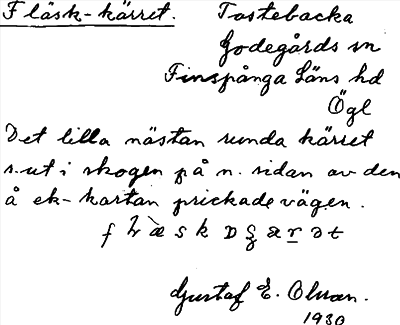 Fläsk-kärret. Tostebacka
Godegårds sn
Finspånga Läns hd
Ögl
Det lilla nästan runda kärret
s. ut i skogen på n. sidan av den
å ek-kartan prickade vägen.
Gustaf E.
1930